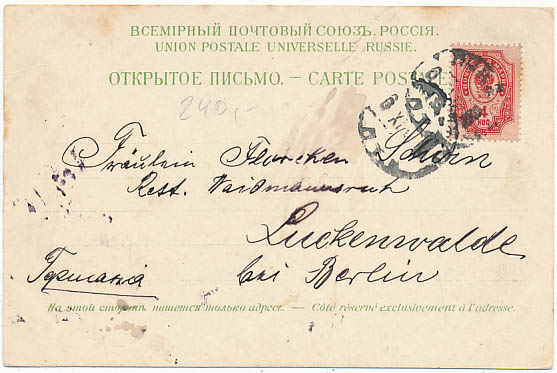 ВСЕМІРНЫЙ ПОЧТОВЫЙ СОЮЗЪ. РОССІЯ.
UNION POSTALE UNIVERSELLE. RUSSIE.
ОТКРЫТОЕ ПИСЬМО. — CARTE POSTALE
240,-
Fräulein Florchen Schorn
Rest. Waidmannsruh
Luckenwalde
Германія bei Berlin
На этой сторонѣ пишется только адресъ. — Côté réservé exclusivement à l'adresse.